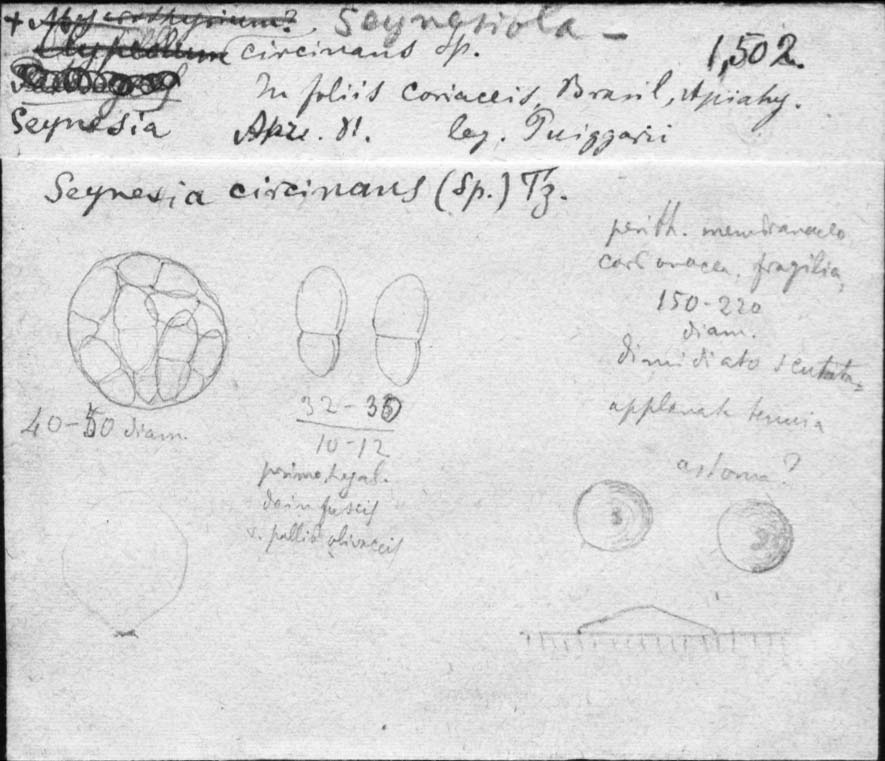 + Seynesiola –
circinans Sp. 1,502.
In foliis coriaceis, Brasil, Apiahy.
Seynesia Apr. 81. leg. Puiggari
Seynesia circinans (Sp.) Tz.
perith. membranaceo
carbonacea, fragilia,
150-220
diam.
dimidiato scutata,
applanata tenuia
astoma?
40-50 diam.
32-36
10-12
primo hyal.
dein fuscis
v. pallid olivaceis